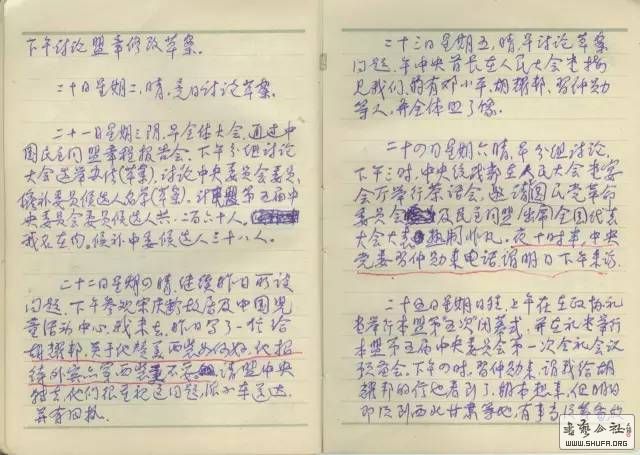 下午讨论盟章修改草案.
二十日星期二,晴,是日讨论草案.
二十一日星期三阴,早全体大会,通过中
国民主同盟章程报告会.下午分组讨论
大会选举办法(草案),讨论中央委员会委员,
候补委员候选人名单(草案).计盟第五届中
央委员会委员候选人共二百六十人.
我名在内.候补中委候选人三十八人.
二十二日星期四,晴,继续昨日所谈
问题.下午参观宋庆龄故居及中国儿
童活动中心,我未去.昨日写了一信给
胡耀邦,关于他提笔西装如何好,他招
待外宾亦穿西装不 请盟中央
转去,他们很重视这问题,派小车送达.
并有回执.
二十三日星期五,晴,早讨论草案
问题.午中央首长在人民大会堂接
见我们,购有邓小平,胡耀邦,习仲勋
等人,并全体照了像.
二十四日星期六晴,早分组讨论,
下午三时,中央统战部在人民大会堂宴
会厅举行茶话会,邀请国民党革命
委员会及民主同盟出席全国代表
大会大表 热闹非凡.夜十时半,中央
党委习仲勋来电话,谓明日下午来访.
二十五日星期日,上午在全政协礼
堂举行本盟第五次闭幕式,并在礼堂举行
本盟第五届中央委员会第一次全体会议
预备会.下午四时,习仲勋来,谓我给胡
耀邦的信他看到了,期本想来,但明日
即须到西北甘肃等地,有事
书艺公社
WWW.SHUFA.ORG